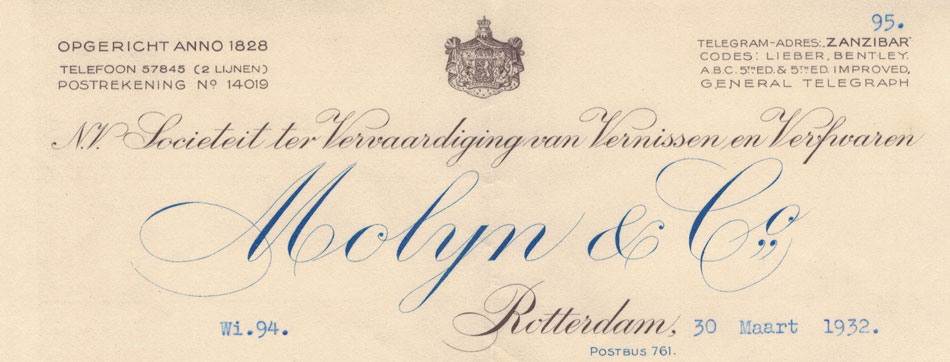 95.
OPGERICHT ANNO 1828
TELEFOON 57845 (2 LIJNEN)
POSTREKENING Nº 14019
TELEGRAM-ADRES: „ZANZIBAR”
CODES: LIEBER, BENTLEY.
A.B.C. 5TH ED. & 5TH ED. IMPROVED,
GENERAL TELEGRAPH
N.V. Societeit ter Vervaardiging van Vernissen en Verfwaren
Molyn & Co
Wi.94.
Rotterdam, 30 Maart 1932.
POSTBUS 761.